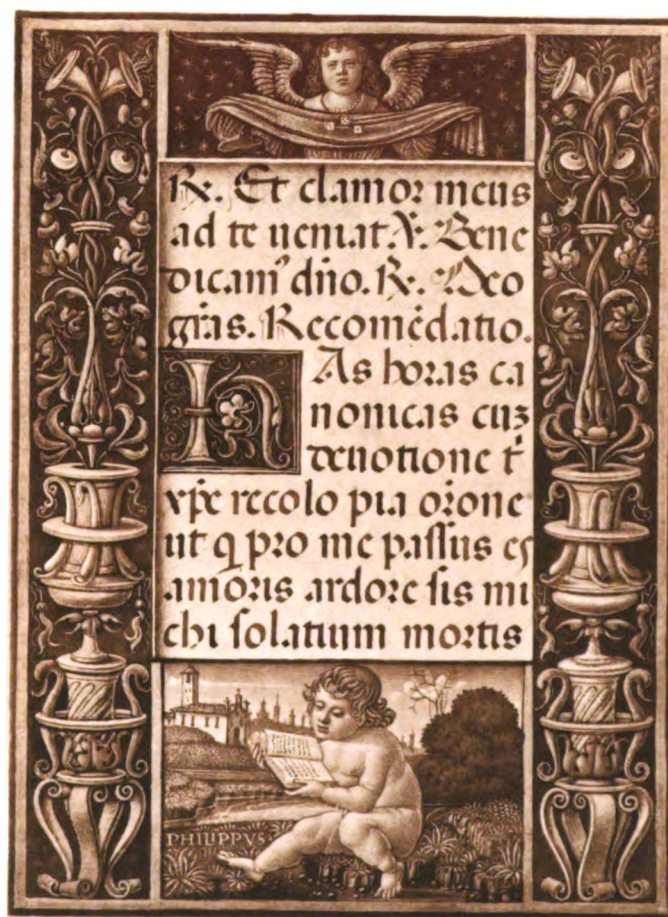 ℟. Et clamor meus
ad te ueniat. ℣. Bene
dicam᷒ dño. ℟. Deo
gr̃as. Recomẽdatio.
HAs horas ca
nonicas cuʒ
deuotione t̃
xp̃e recolo pia or̃one
ut q̃ pro me passus es
amoris ardore sis mi
chi solatium mortis
PHILIPPVS